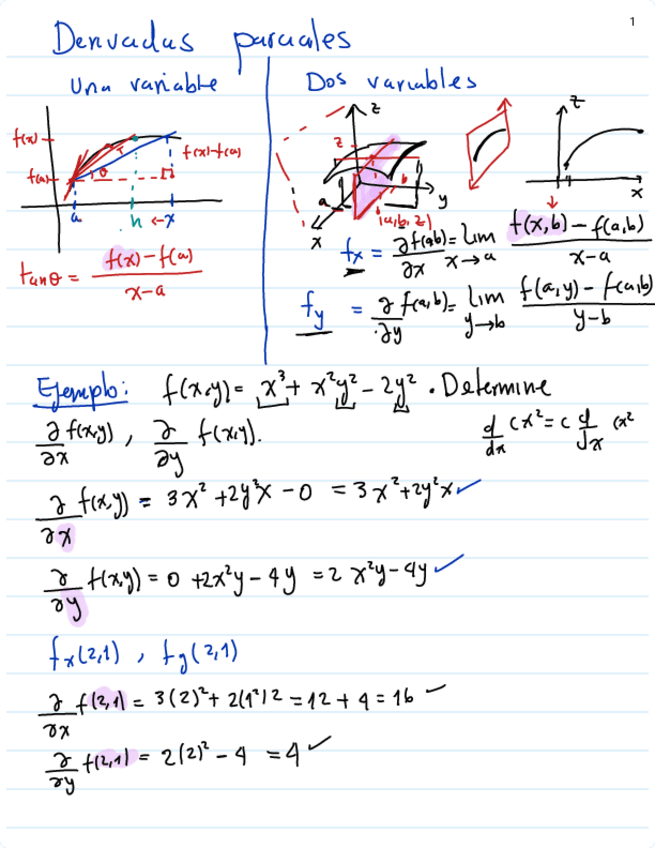 1
Derivadas parciales
Una variable
f(x)
f(a)
θ
f(x)-f(a)
a
h ← x
tanθ = f(x)-f(a) / x-a
Dos variables
z
z
a
b
y
x
(a,b,z)
z
x
fx = ∂f(ab)/∂x = lim x→a f(x,b)-f(a,b) / x-a
fy = ∂f(a,b)/∂y = lim y→b f(a,y)-f(a,b) / y-b
Ejemplo: f(x,y)= x³+ x²y² - 2y². Determine
∂/∂x f(x,y), ∂/∂y f(x,y).
d/dx cx² = c d/dx
∂/∂x f(x,y) = 3x² + 2y²x - 0 = 3x²+2y²x ✓
∂/∂y f(x,y) = 0 + 2x²y - 4y = 2x²y - 4y ✓
fx(2,1), fy(2,1)
∂/∂x f(2,1) = 3(2)² + 2(1²)2 = 12 + 4 = 16 ✓
∂/∂y f(2,1) = 2(2)² - 4 = 4 ✓